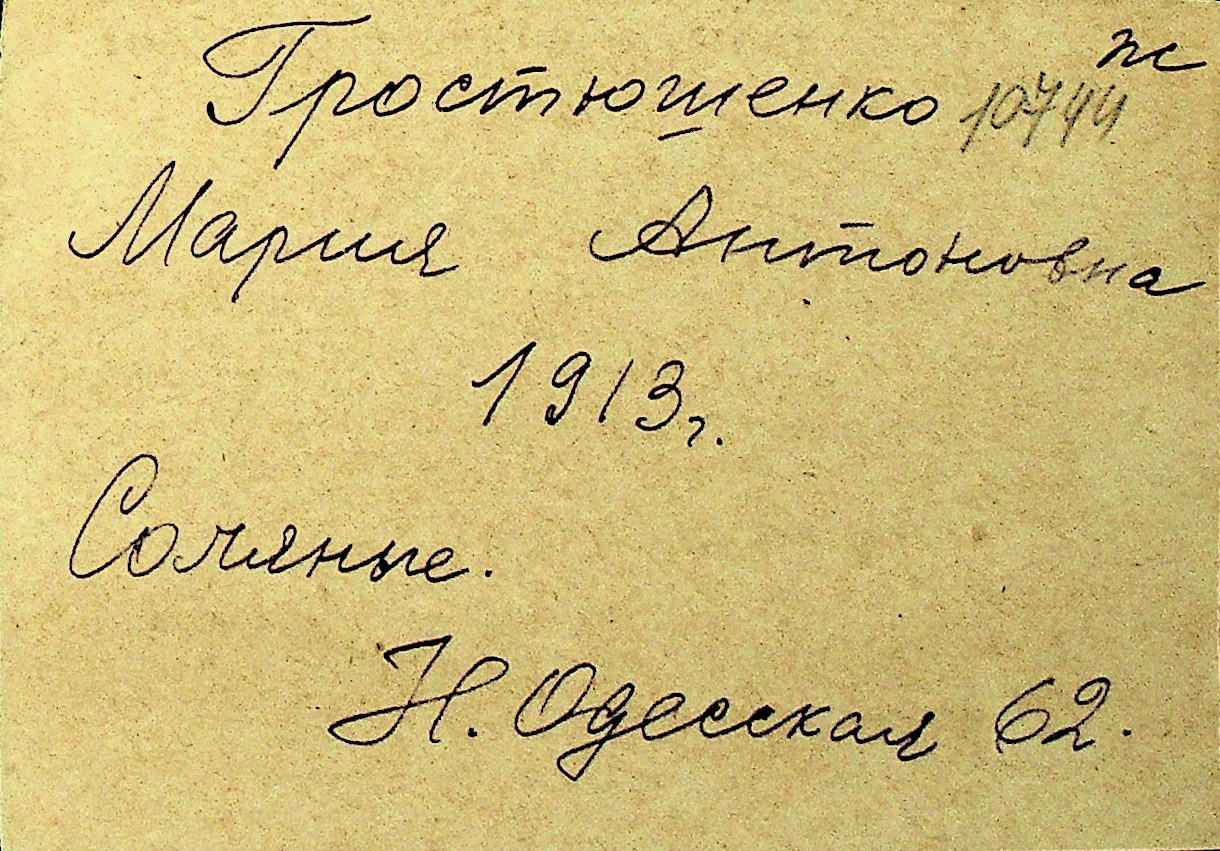 Гростюшенко
10744
Мария Антоновна
1913г.
Соляные.
Н. Одесская 62.